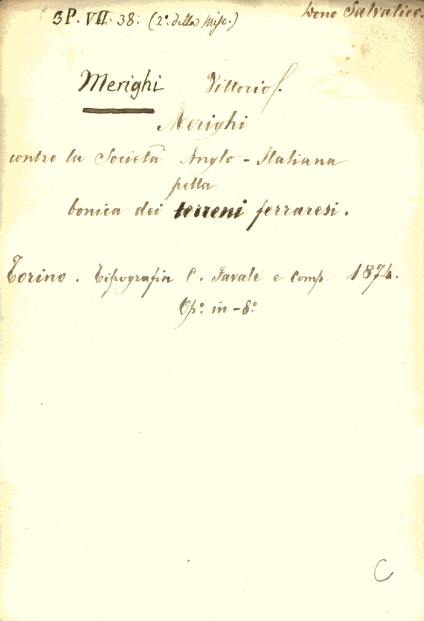 3P. VII. 38. (2° della Misc.)
Dono Salvatico.
Merighi Vittorio.
Merighi
contro la Società Anglo-Italiana
pella
bonica dei terreni ferraresi.
Torino. Tipografia C. Favale e comp. 1874.
Op.° in-8°
C